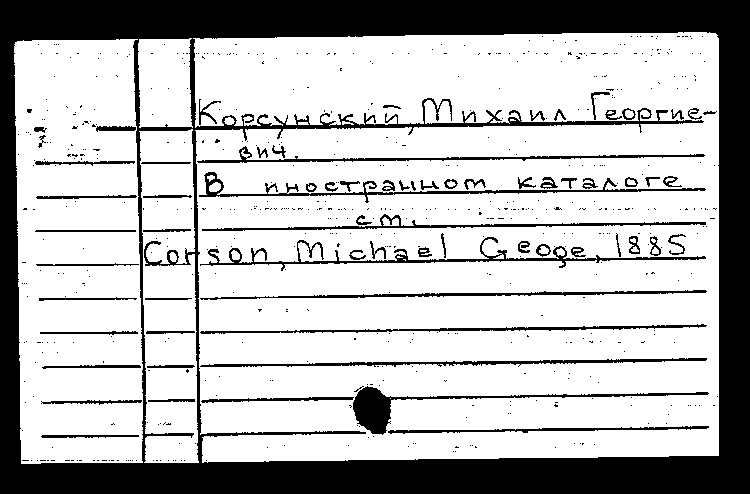 Корсунский, Михаил Георгие-
вич.
В иностранном каталоге
см.
Corson, Michael Geoge, 1885